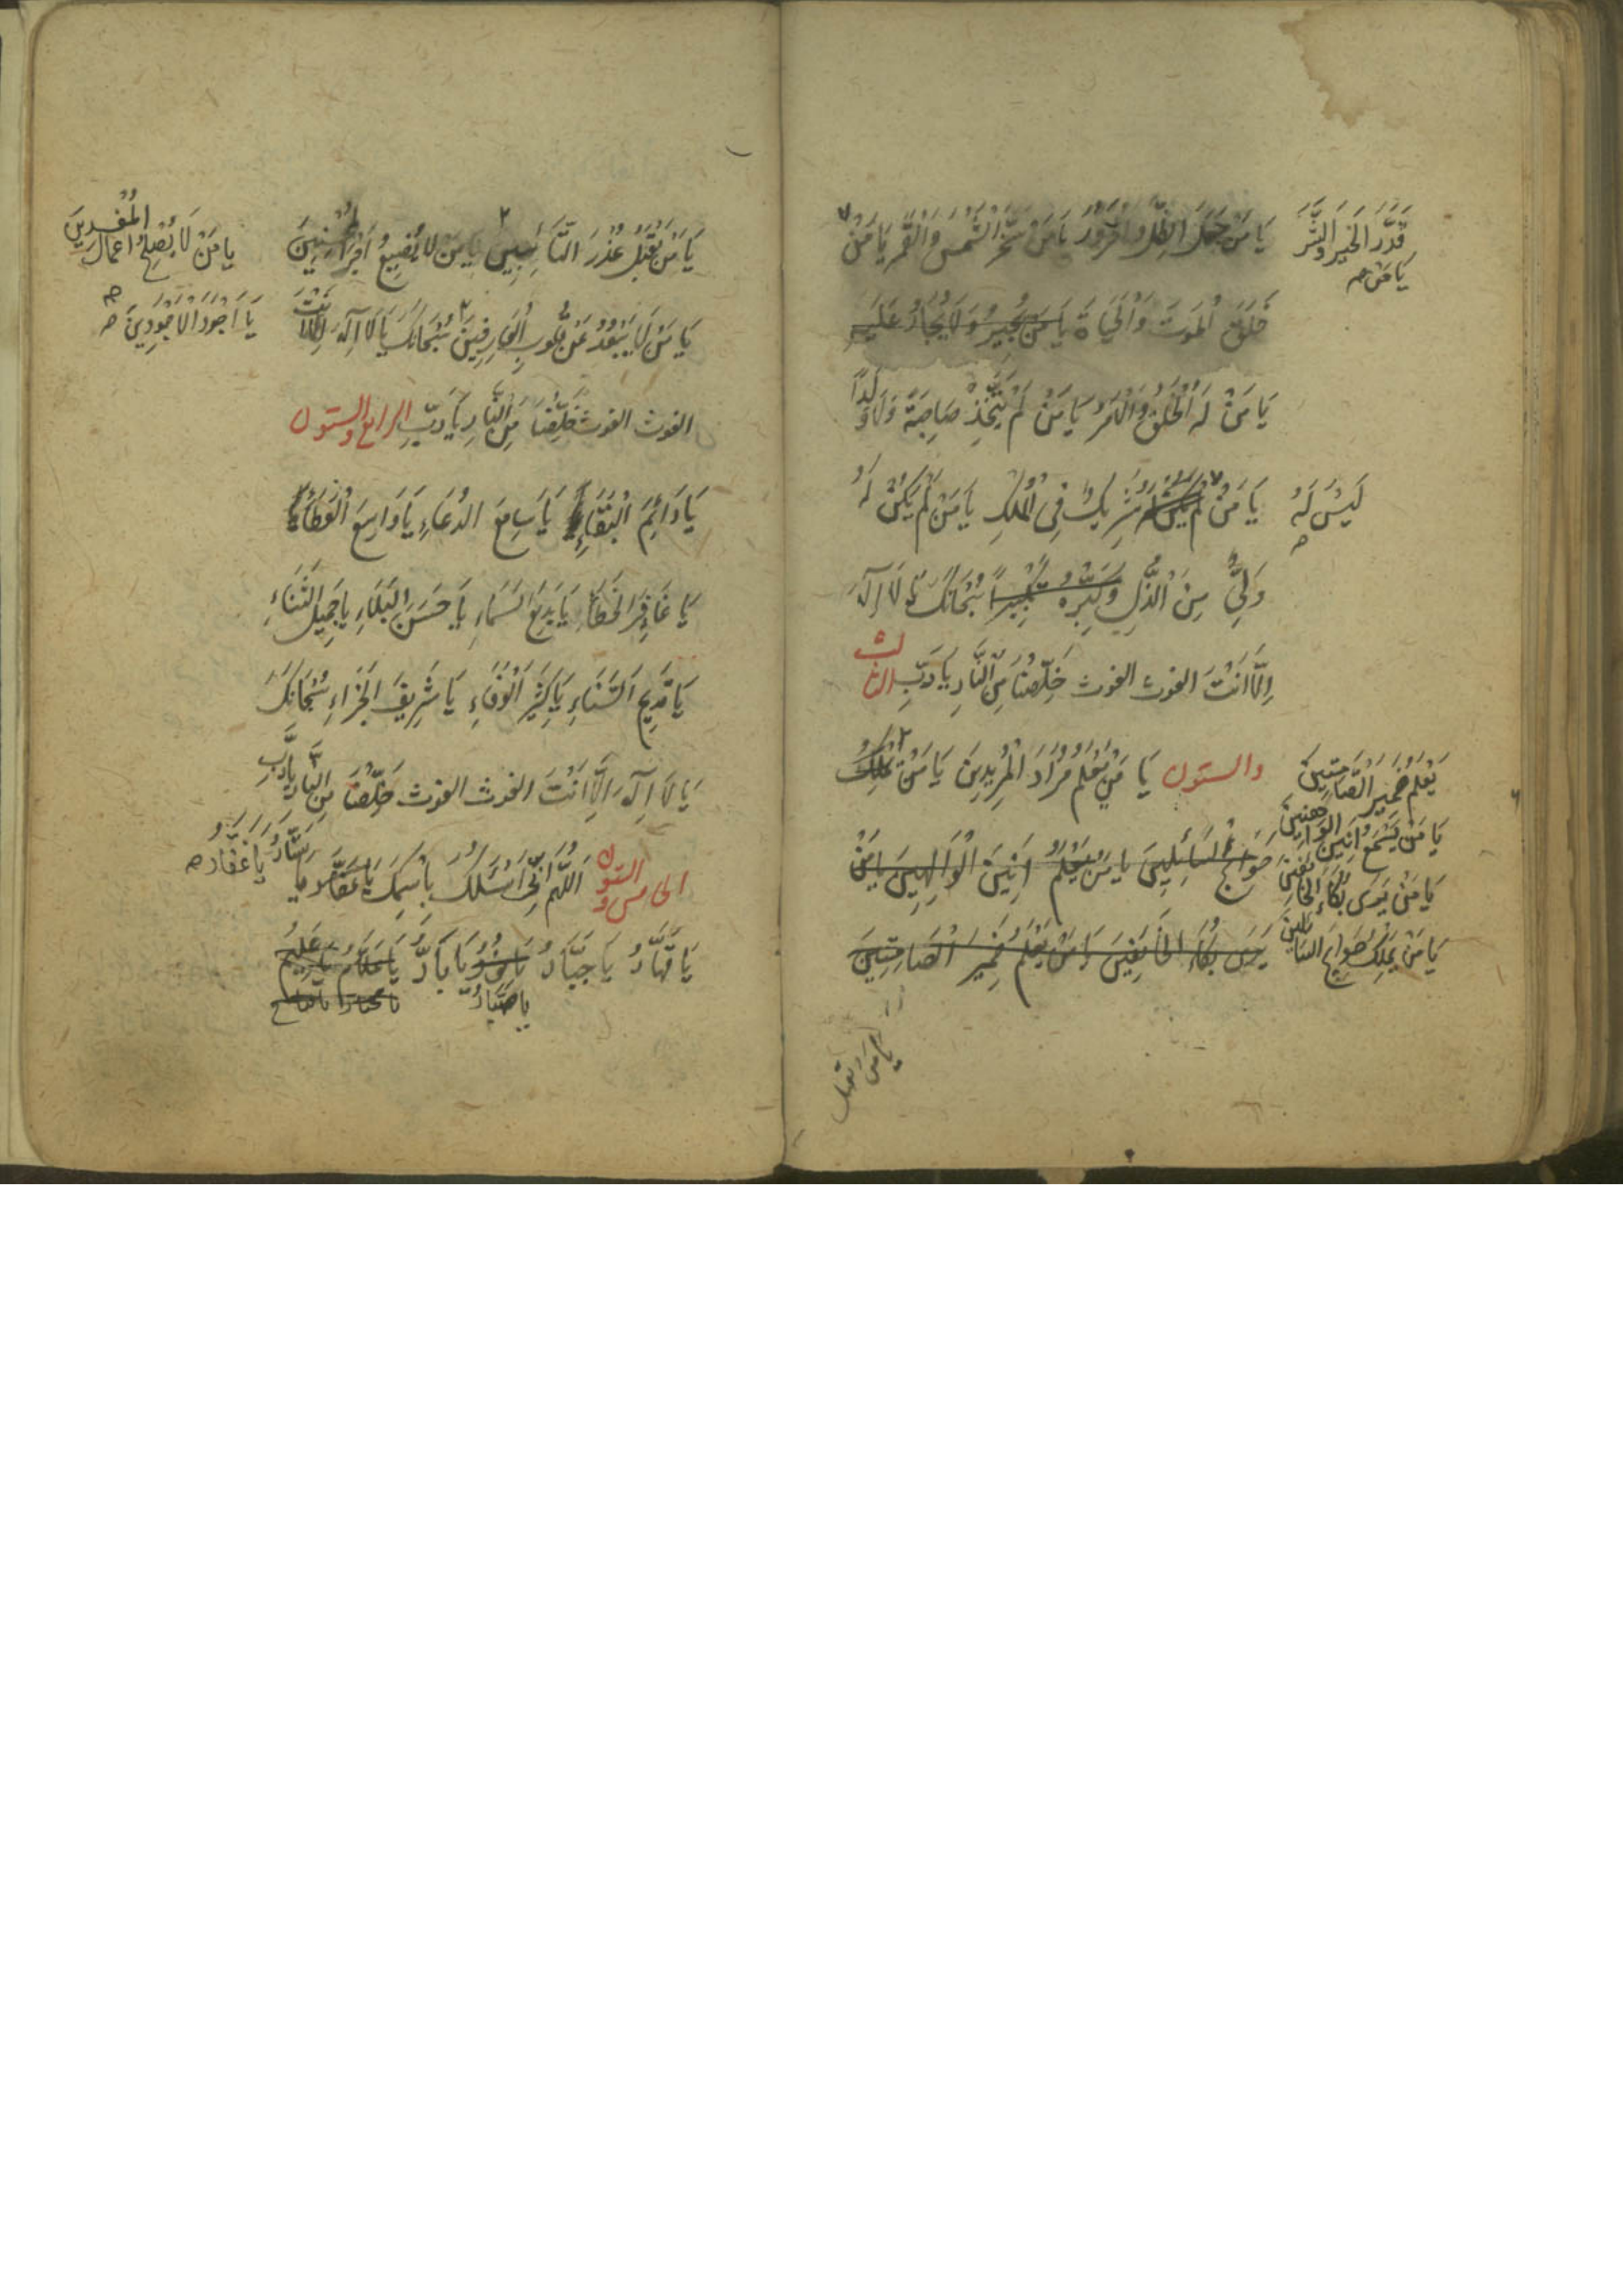 يَا مَنْ جَعَلَ الظِّلَّ وَالْحَرُورَ يَا مَنْ سَخَّرَ الشَّمْسَ وَالْقَمَرَ يَا مَنْ
قَدَّرَ الْخَيْرَ وَالشَّرَّ
يَا مَنْ صح
خَلَقَ الْمَوْتَ وَالْحَيَاةَ يَا مَنْ يُجِيرُ وَلَا يُجَارُ عَلَيْهِ
يَا مَنْ لَهُ الْخَلْقُ وَالْاَمْرُ يَا مَنْ لَمْ يَتَّخِذْ صَاحِبَةً وَلَا وَلَداً
يَا مَنْ لَمْ يَكُنْ لَهُ شَرِيكٌ فِى الْمُلْكِ يَا مَنْ لَمْ يَكُنْ لَهُ
لَيْسَ لَهُ
وَلِىٌّ مِنَ الذُّلِّ وَكَبِّرْهُ تَكْبِيراً سُبْحَانَكَ يَا لَا اِلَهَ
اِلَّا اَنْتَ الغوث الغوث خَلِّصْنَا مِنَ النَّارِ يَا رَبِّ الثالث
والستون يَا مَنْ يَعْلَمُ مُرَادَ الْمُرِيدِينَ يَا مَنْ يَمْلِكُ
يَعْلَمُ ضَمِيرَ الصَّامِتِينَ
حَوَائِجَ السَائِلِينَ يا مَنْ يَعْلَمُ اَنِينَ الْوَالِهِينَ يَا مَنْ
يَا مَنْ يَسْمَعُ اَنِينَ الْوَاهِنِينَ
يَا مَنْ يَرَى بُكَاءَ الْخَائِفِينَ
يَرَى بُكَاءَ الْخَائِفِينَ يَا مَنْ يَعْلَمُ ضَمِيرَ الْصَامِتِينَ
يَا مَنْ يَمْلِكُ حَوَائِجَ السَائِلِينَ
يا من يقبل
يَا مَنْ يَقْبَلُ عُذْرَ التَّائِبِينَ يَا مَنْ لَا يُضِيعُ اَجْرَ الْمُحْسِنِينَ
يا مَنْ لَا يُصْلِحُ اَعْمَالَ الْمُفْسِدِينَ
يَا مَنْ لَا يَبْعُدُ عَنْ قُلُوبِ الْعَارِفِينَ سُبْحَانَكَ يَا لَا اِلَهَ اِلَّا اَنْتَ
يَا اَجْوَدَ الْاَجْوَدِينَ صح
الغوث الغوث خَلِّصْنَا مِنَ النَّارِ يَا رَبِّ الرابع والستون
يَا دَائِمَ الْبَقَاءِ يَا سَامِعَ الدُعَاءِ يَا وَاسِعَ الْعَطَاءِ
يَا غَافِرَ الْخَطَاءِ يَا بَدِيعَ السَمَاءِ يَا حَسَنَ الْبَلَاءِ يا جَمِيلَ الثَنَاءِ
يَا قَدِيمَ السَّنَاءِ يَا كَثِيرَ الْوَفَاءِ يَا شَرِيفَ الْجَزَاءِ سُبْحَانَكَ
يَا لَا اِلَهَ اِلَّا اَنْتَ الغوث الغوث خَلِّصْنَا مِنَ النَّارِ يَا رَبِّ
الخامس والستون اَللَّهُمَّ اِنِّى اَسْئَلُكَ بِاسْمِكَ يَا غَفَّارُ يا
سَتَّارُ يا غفار صح
يَا قَهَّارُ يَا جَبَّارُ يَا بَارُّ يَا عَلَّامُ يَا عَلِيمُ
يا صَبَّارُ يا مختار يا فتاح